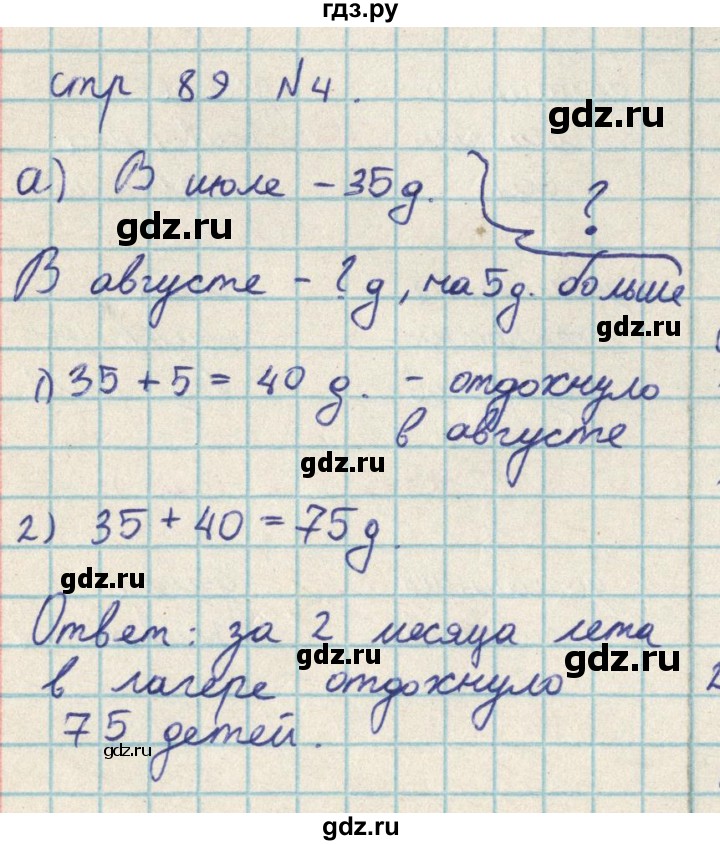 гдз.ру
стр 89 №4.
gdz.ru
а) В июле - 35 д. ?
gdz.ru
В августе - ? д, на 5 д. больше
gdz.ru
1) 35 + 5 = 40 д. - отдохнуло
в августе
gdz.ru
2) 35 + 40 = 75 д.
gdz.ru
Ответ: за 2 месяца лета
gdz.ru
gdz.ru
в лагере отдохнуло
75 детей.
gdz.ru
gdz.ru